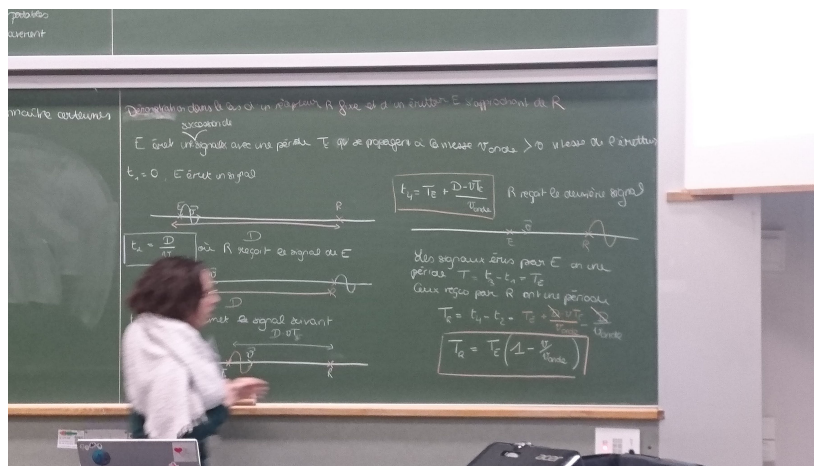 portables
Démonstration dans le cas d'un récepteur R fixe et d'un émetteur E s'approchant de R
succession de
E émet un signal avec une période T_E qui se propagent à la vitesse v_onde > v vitesse de l'émetteur
t_1 = 0, E émet un signal
E v R
D
t_2 = D/v où R reçoit le signal de E
v R
D
émet le signal suivant
D-vT_E
E v R
t_4 = T_E + (D-vT_E)/v_onde R reçoit le deuxième signal
E v R
Les signaux émis par E ont une
période T = t_3 - t_1 = T_E
Ceux reçus par R ont une période
T_R = t_4 - t_2 = T_E + (D-vT_E)/v_onde - D/v_onde
T_R = T_E (1 - v/v_onde)
acer